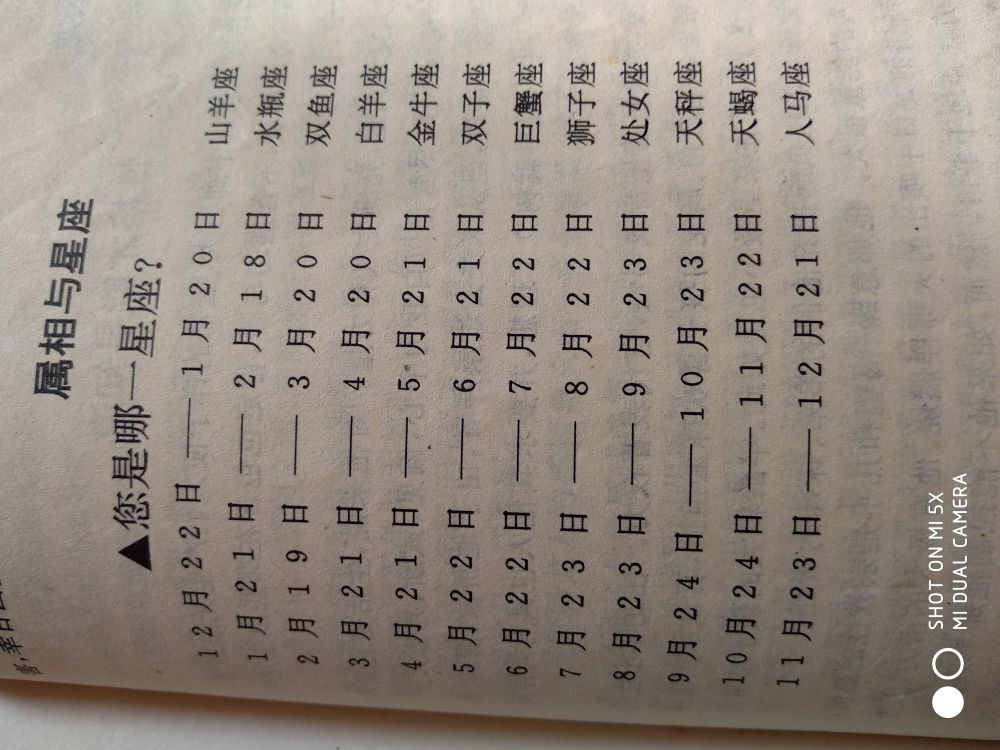 属相与星座
▲您是哪一星座?
12月22日——1月20日 山羊座
1月21日——2月18日 水瓶座
2月19日——3月20日 双鱼座
3月21日——4月20日 白羊座
4月21日——5月21日 金牛座
5月22日——6月21日 双子座
6月22日——7月22日 巨蟹座
7月23日——8月22日 狮子座
8月23日——9月23日 处女座
9月24日——10月23日 天秤座
10月24日——11月22日 天蝎座
11月23日——12月21日 人马座
SHOT ON MI 5X
MI DUAL CAMERA